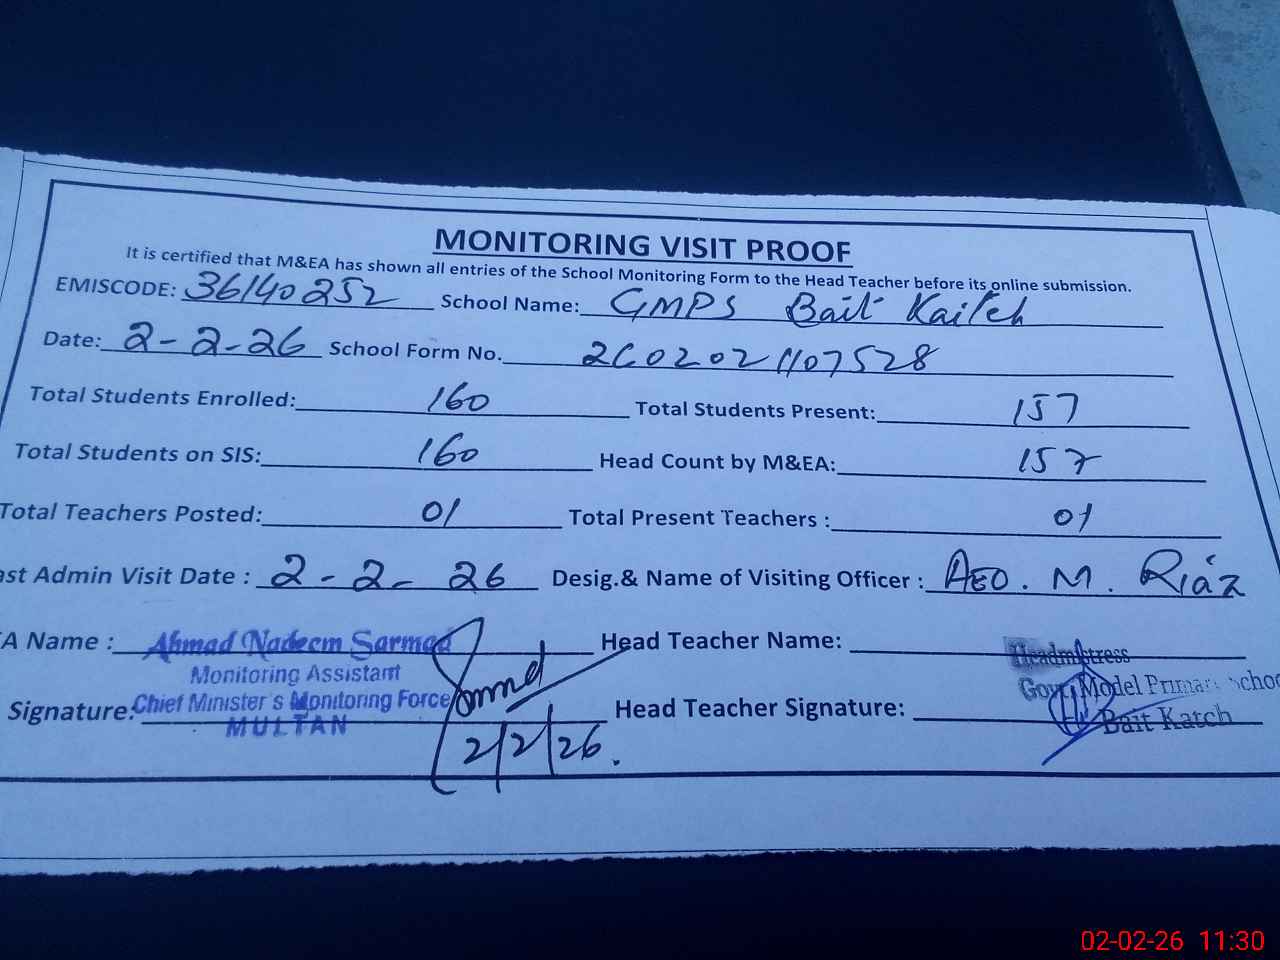 MONITORING VISIT PROOF
It is certified that M&EA has shown all entries of the School Monitoring Form to the Head Teacher before its online submission.
EMISCODE: 36140252 School Name: GMPS Bait Kaitch
Date: 2-2-26 School Form No. 260202 1107528
Total Students Enrolled: 160 Total Students Present: 157
Total Students on SIS: 160 Head Count by M&EA: 157
Total Teachers Posted: 01 Total Present Teachers : 01
ast Admin Visit Date : 2-2-26 Desig.& Name of Visiting Officer : AEO. M. Riaz
A Name : Ahmad Nadeem Sarmad Head Teacher Name:
Monitoring Assistant Headmistress
Signature: Chief Minister's Monitoring Force Head Teacher Signature: Govt. Model Primary School
MULTAN Bait Katch
2/2/26.
02-02-26 11:30